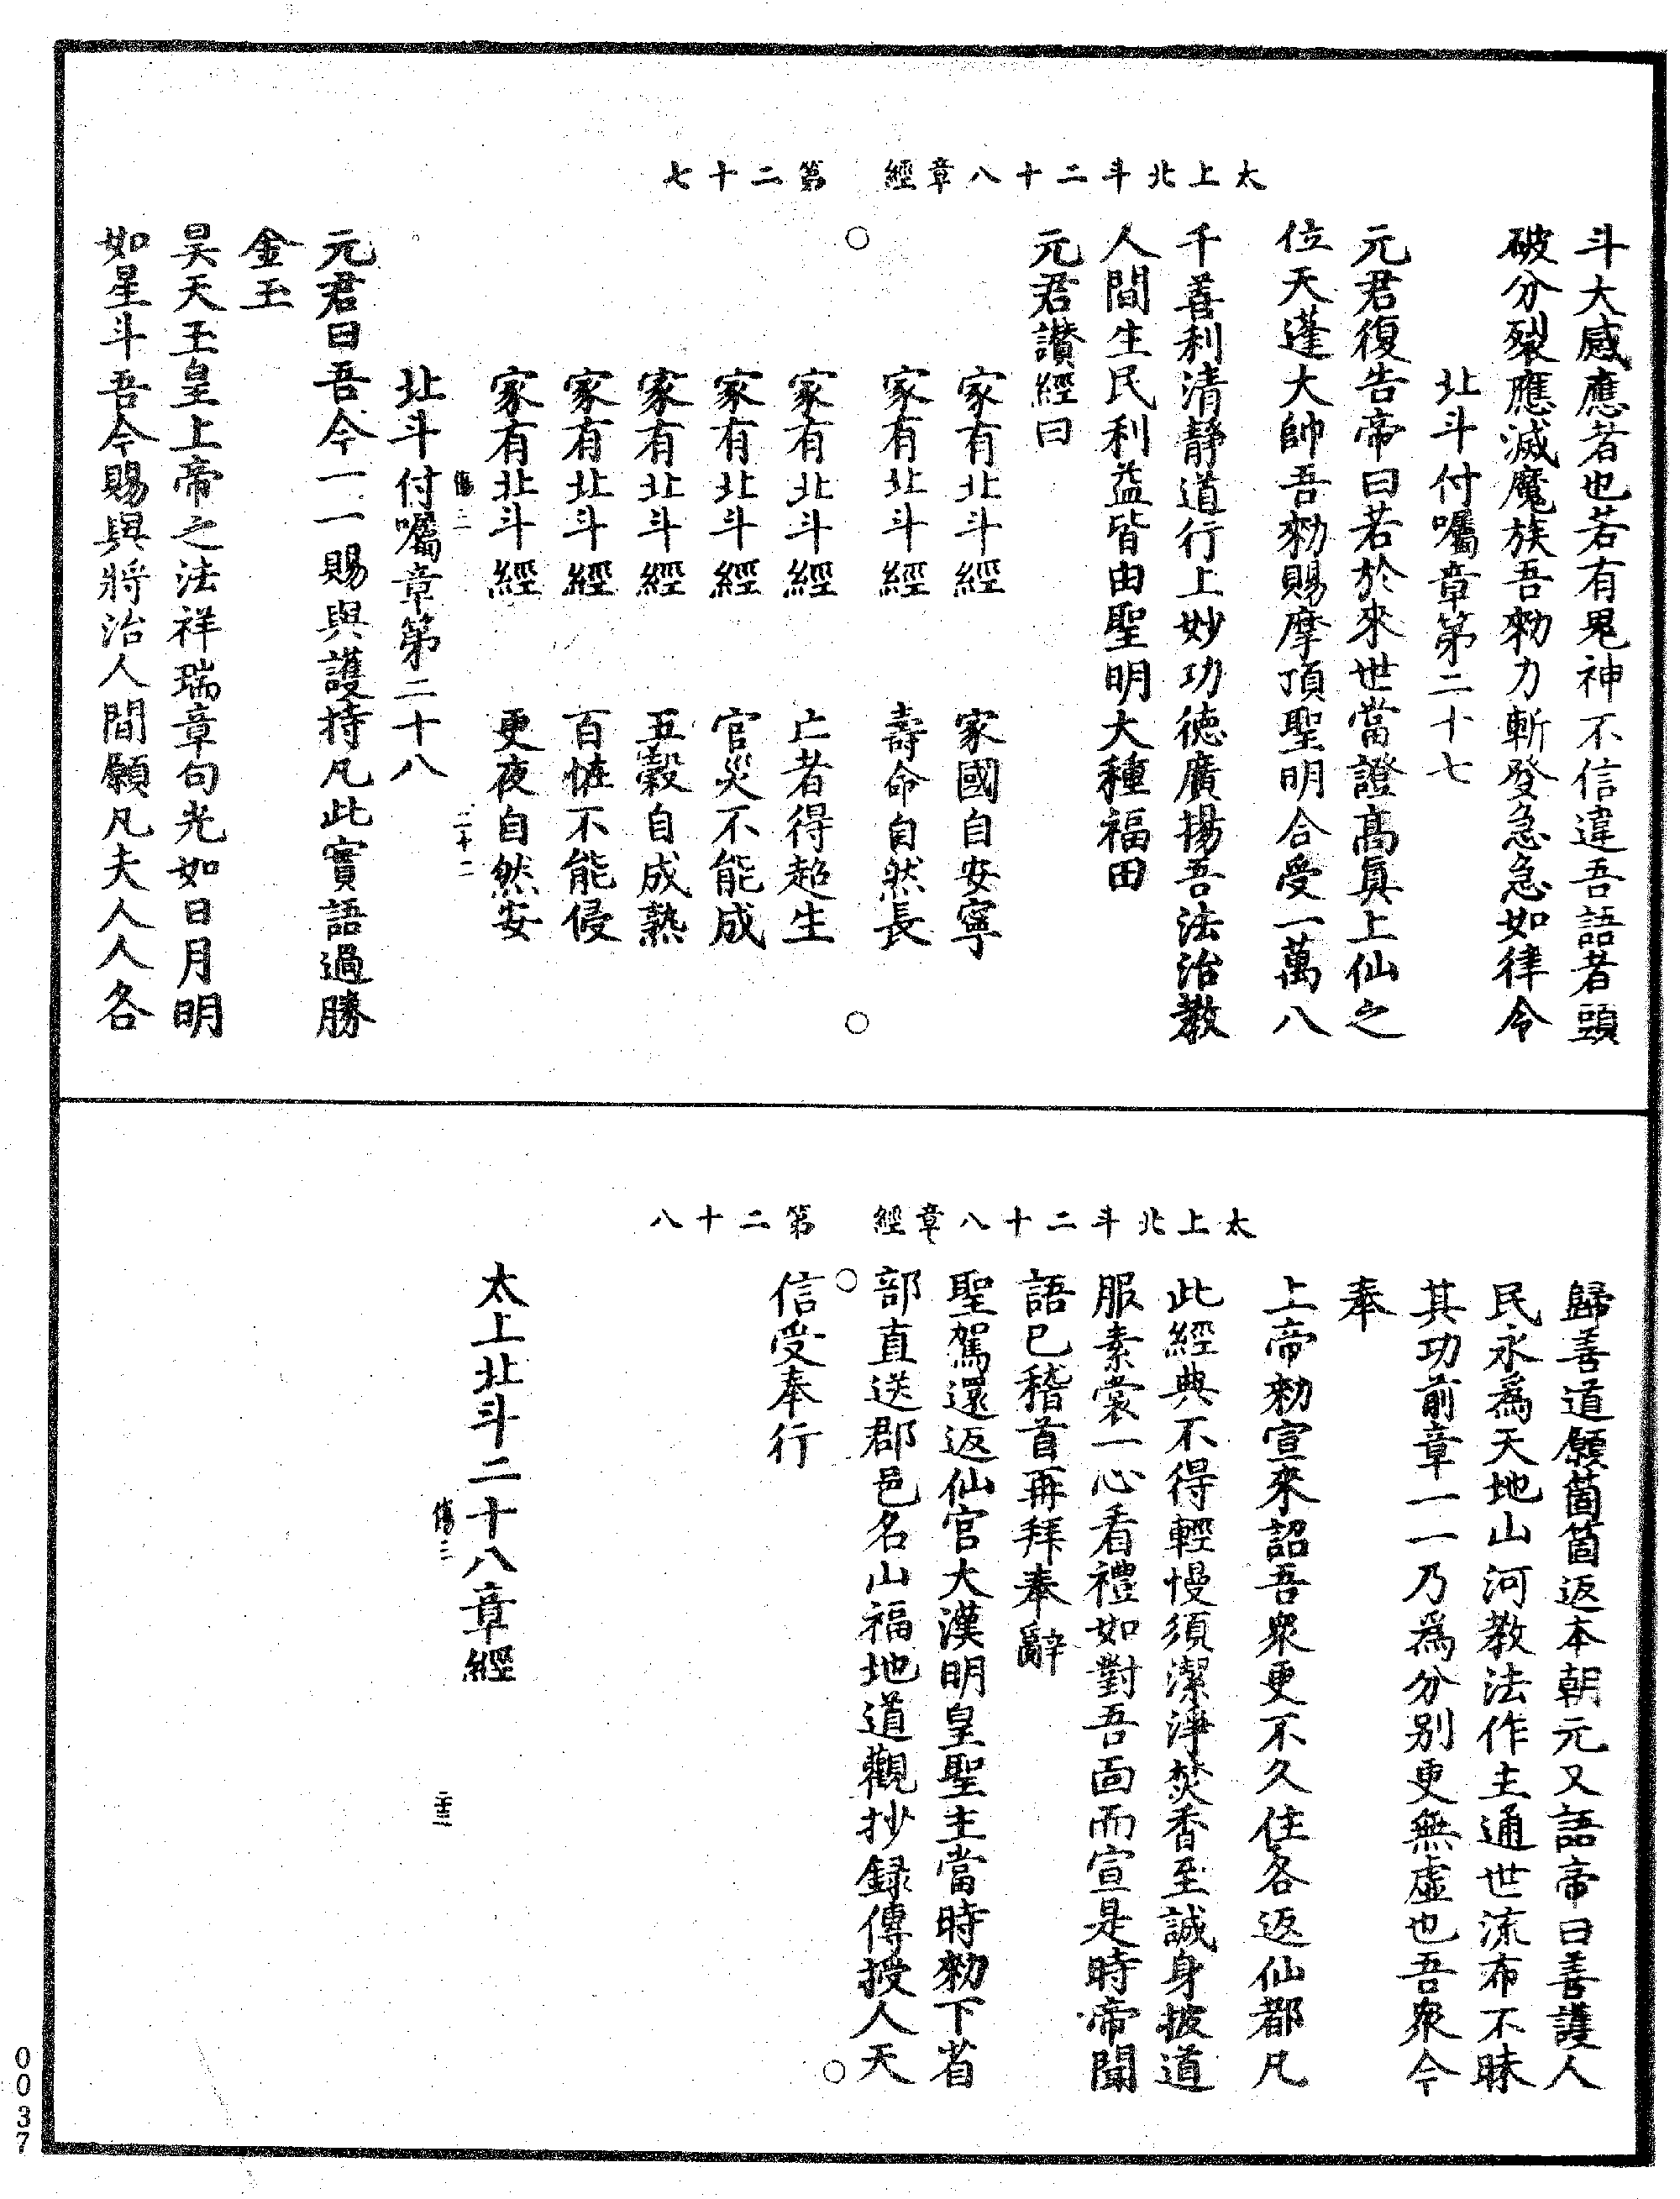 太上北斗二十八章經　第二十七
斗大感應若也若有鬼神不信違吾語者頭
破分裂應滅魔族吾勑力斬發急急如律令
北斗付囑章第二十七
元君復告帝曰若於來世當證髙眞上仙之
位天蓬大帥吾勑賜摩頂聖明合受一萬八
千善利清靜道行上妙功德廣揚吾法治教
人間生民利益皆由聖明大種福田
元君讚經曰
家有北斗經　家國自安寧
家有北斗經　壽命自然長
家有北斗經　亡者得超生
家有北斗經　官災不能成
家有北斗經　五穀自成熟
家有北斗經　百恠不能侵
家有北斗經　更夜自然安
傷二　二十二
北斗付囑章第二十八
元君曰吾今一一賜與護持凡此實語過勝
金玉
昊天玉皇上帝之法祥瑞章句光如日月明
如星斗吾今賜與將治人間願凡夫人人各
太上北斗二十八章經　第二十八
歸善道願箇箇返本朝元又語帝曰善護人
民永爲天地山河教法作主通世流布不昧
其功前章一一乃爲分別更無虛也吾衆今
奉
上帝勑宣來詔吾衆更不久住各返仙都凡
此經典不得輕慢須潔淨焚香至誠身披道
服素裳一心看禮如對吾面而宣是時帝聞
語已稽首再拜奉辭
聖駕還返仙官大漢明皇聖主當時勑下省
部直送郡邑名山福地道觀抄録傳授人天
信受奉行
太上北斗二十八章經
傷三　二十三
0037